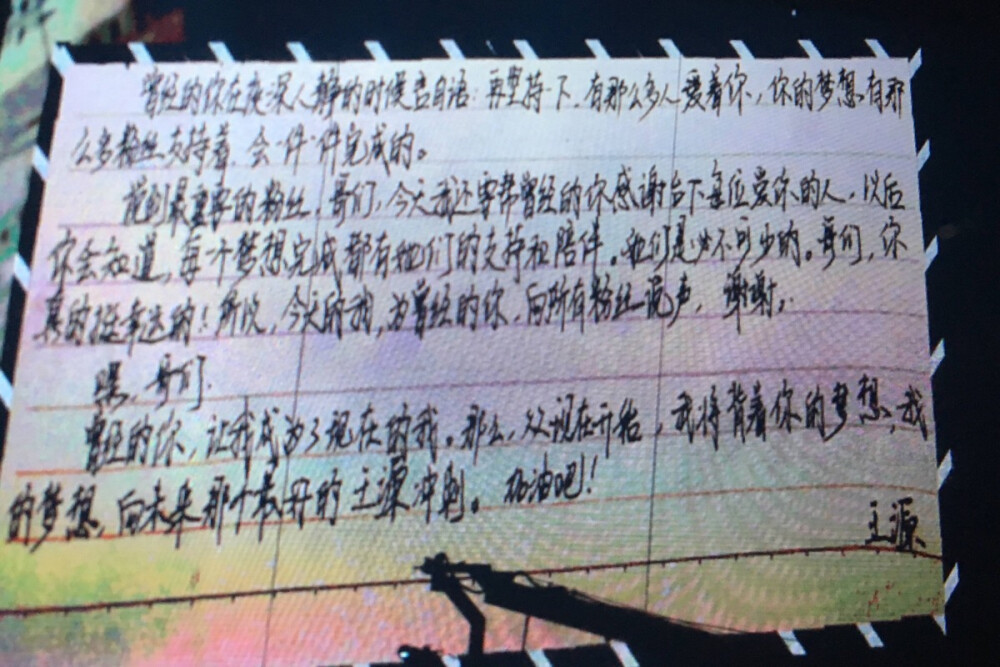 曾经的你在夜深人静的时候告自语：再坚持一下，有那么多人爱着你，你的梦想有那
么多粉丝支持着，会一件一件完成的。
说到最重要的粉丝，哥们，今天我还要帮曾经的你感谢台下每位爱你的人，以后
你会知道，每个梦想完成都有她们的支持和陪伴。她们是必不可少的。哥们，你
真的挺幸运的！所以，今天的我，为曾经的你，向所有粉丝说声，谢谢。
嘿，哥们，
曾经的你，让我成为了现在的我。那么，从现在开始，我将背着你的梦想，我
的梦想，向未来那个最好的王源冲刺。加油吧！
王源